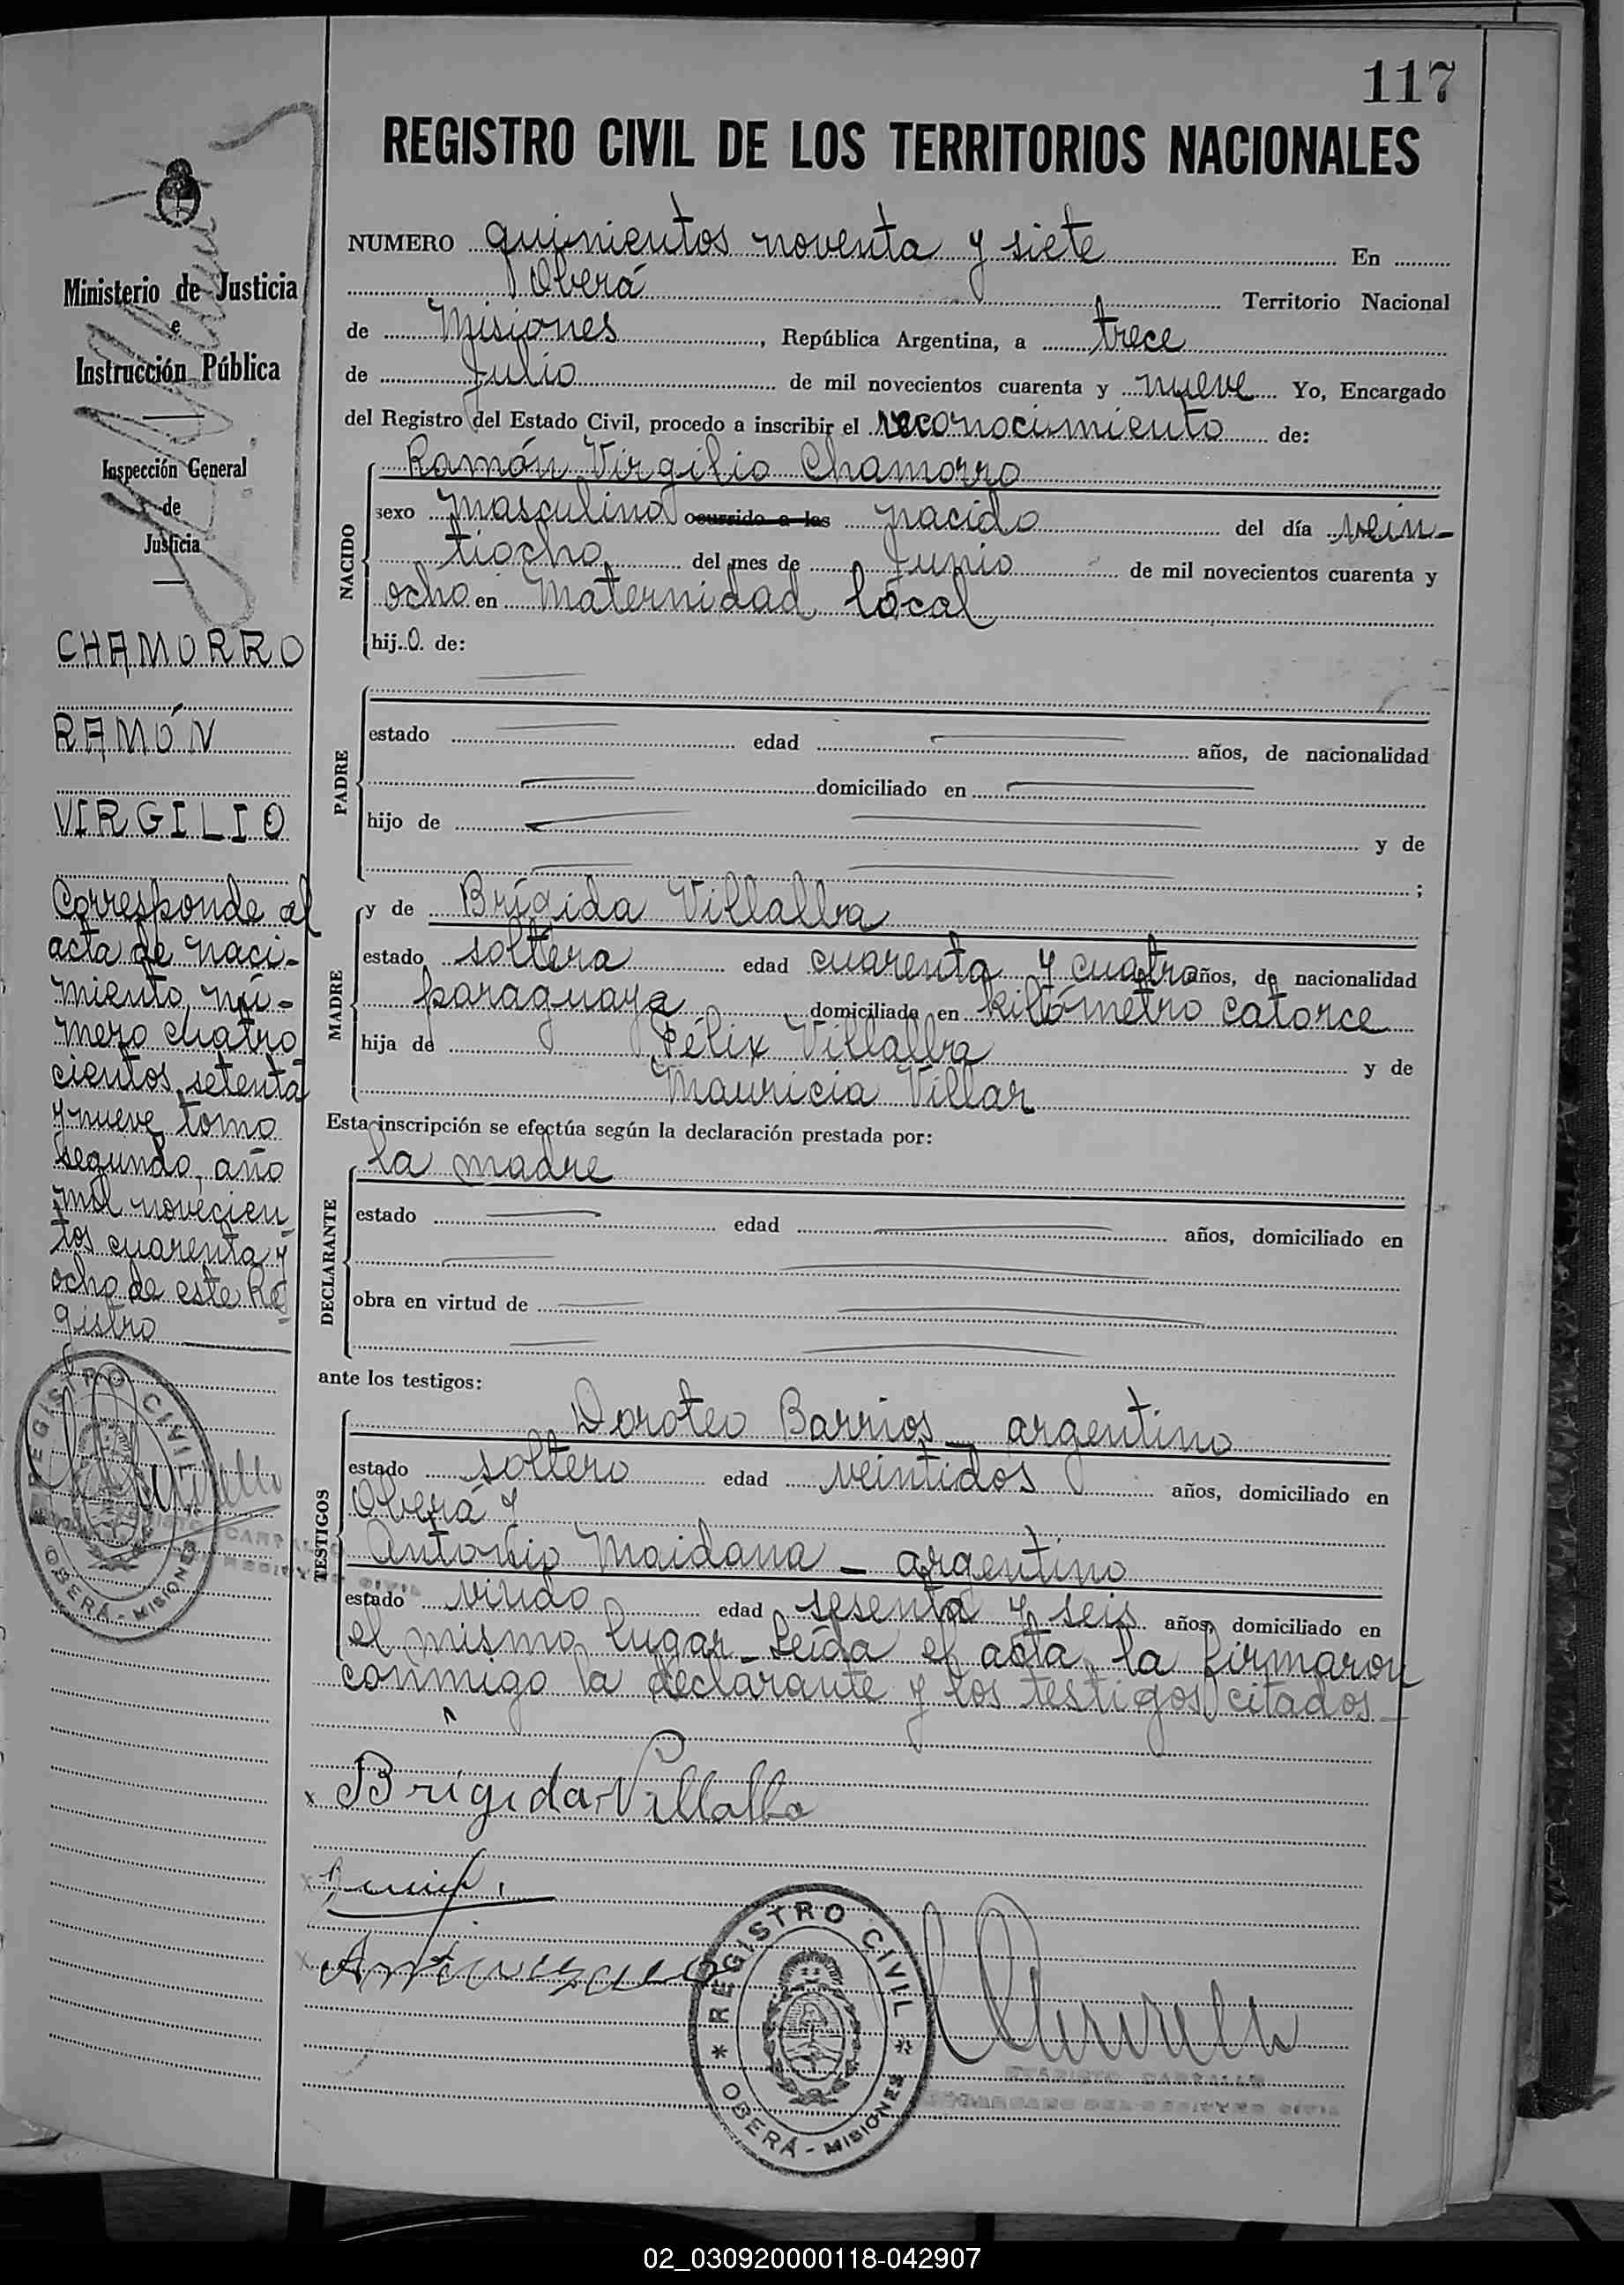 117
REGISTRO CIVIL DE LOS TERRITORIOS NACIONALES
Ministerio de Justicia
e
Instrucción Pública
Inspección General
de
Justicia
CHAMORRO
RAMÓN
VIRGILIO
Corresponde al
acta de naci-
miento nú-
mero cuatro
cientos setenta
y nueve tomo
segundo, año
mil novecien
tos cuarenta y
ocho de este Re
gistro
REGISTRO CIVIL
OBERÁ - MISIONES
NUMERO quinientos noventa y siete En
Oberá Territorio Nacional
de Misiones, República Argentina, a trece
de Julio de mil novecientos cuarenta y nueve Yo, Encargado
del Registro del Estado Civil, procedo a inscribir el reconocimiento de:
NACIDO
Ramón Virgilio Chamorro
sexo masculino ocurrido a las nacido del día vein-
tiocho del mes de Junio de mil novecientos cuarenta y
ocho en Maternidad local
hijo de:
PADRE
estado edad años, de nacionalidad
domiciliado en
hijo de y de
;
MADRE
y de Brígida Villalba
estado soltera edad cuarenta y cuatro años, de nacionalidad
paraguaya domiciliada en kilómetro catorce
hija de Félix Villalba y de
Mauricia Villar
Esta inscripción se efectúa según la declaración prestada por:
DECLARANTE
la madre
estado edad años, domiciliado en
obra en virtud de
ante los testigos:
TESTIGOS
Doroteo Barrios - argentino
estado soltero edad veintidos años, domiciliado en
Oberá y
Antonio Maidana - argentino
estado viudo edad sesenta y seis años, domiciliado en
el mismo lugar - Leída el acta, la firmaron
conmigo la declarante y los testigos citados -
x Brígida Villalba
REGISTRO CIVIL
OBERÁ - MISIONES
02_030920000118-042907